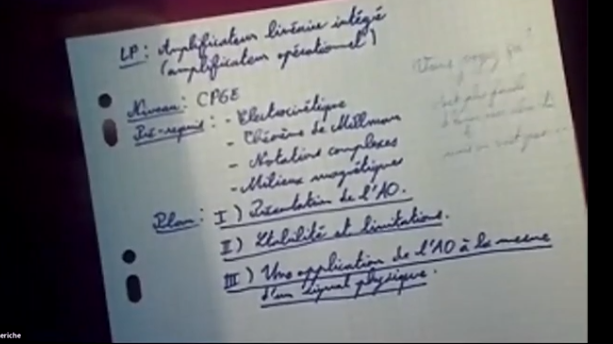 LP : Amplificateur linéaire intégré
(amplificateur opérationnel)
Niveau : CPGE
Pré-requis : - Electrocinétique
- Théorème de Millman
- Notations complexes
- Milieux magnétiques
Plan : I) Présentation de l'AO.
II) Stabilité et limitations.
III) Une application de l'AO à la mesure
d'un signal physique.
Vous
eriche